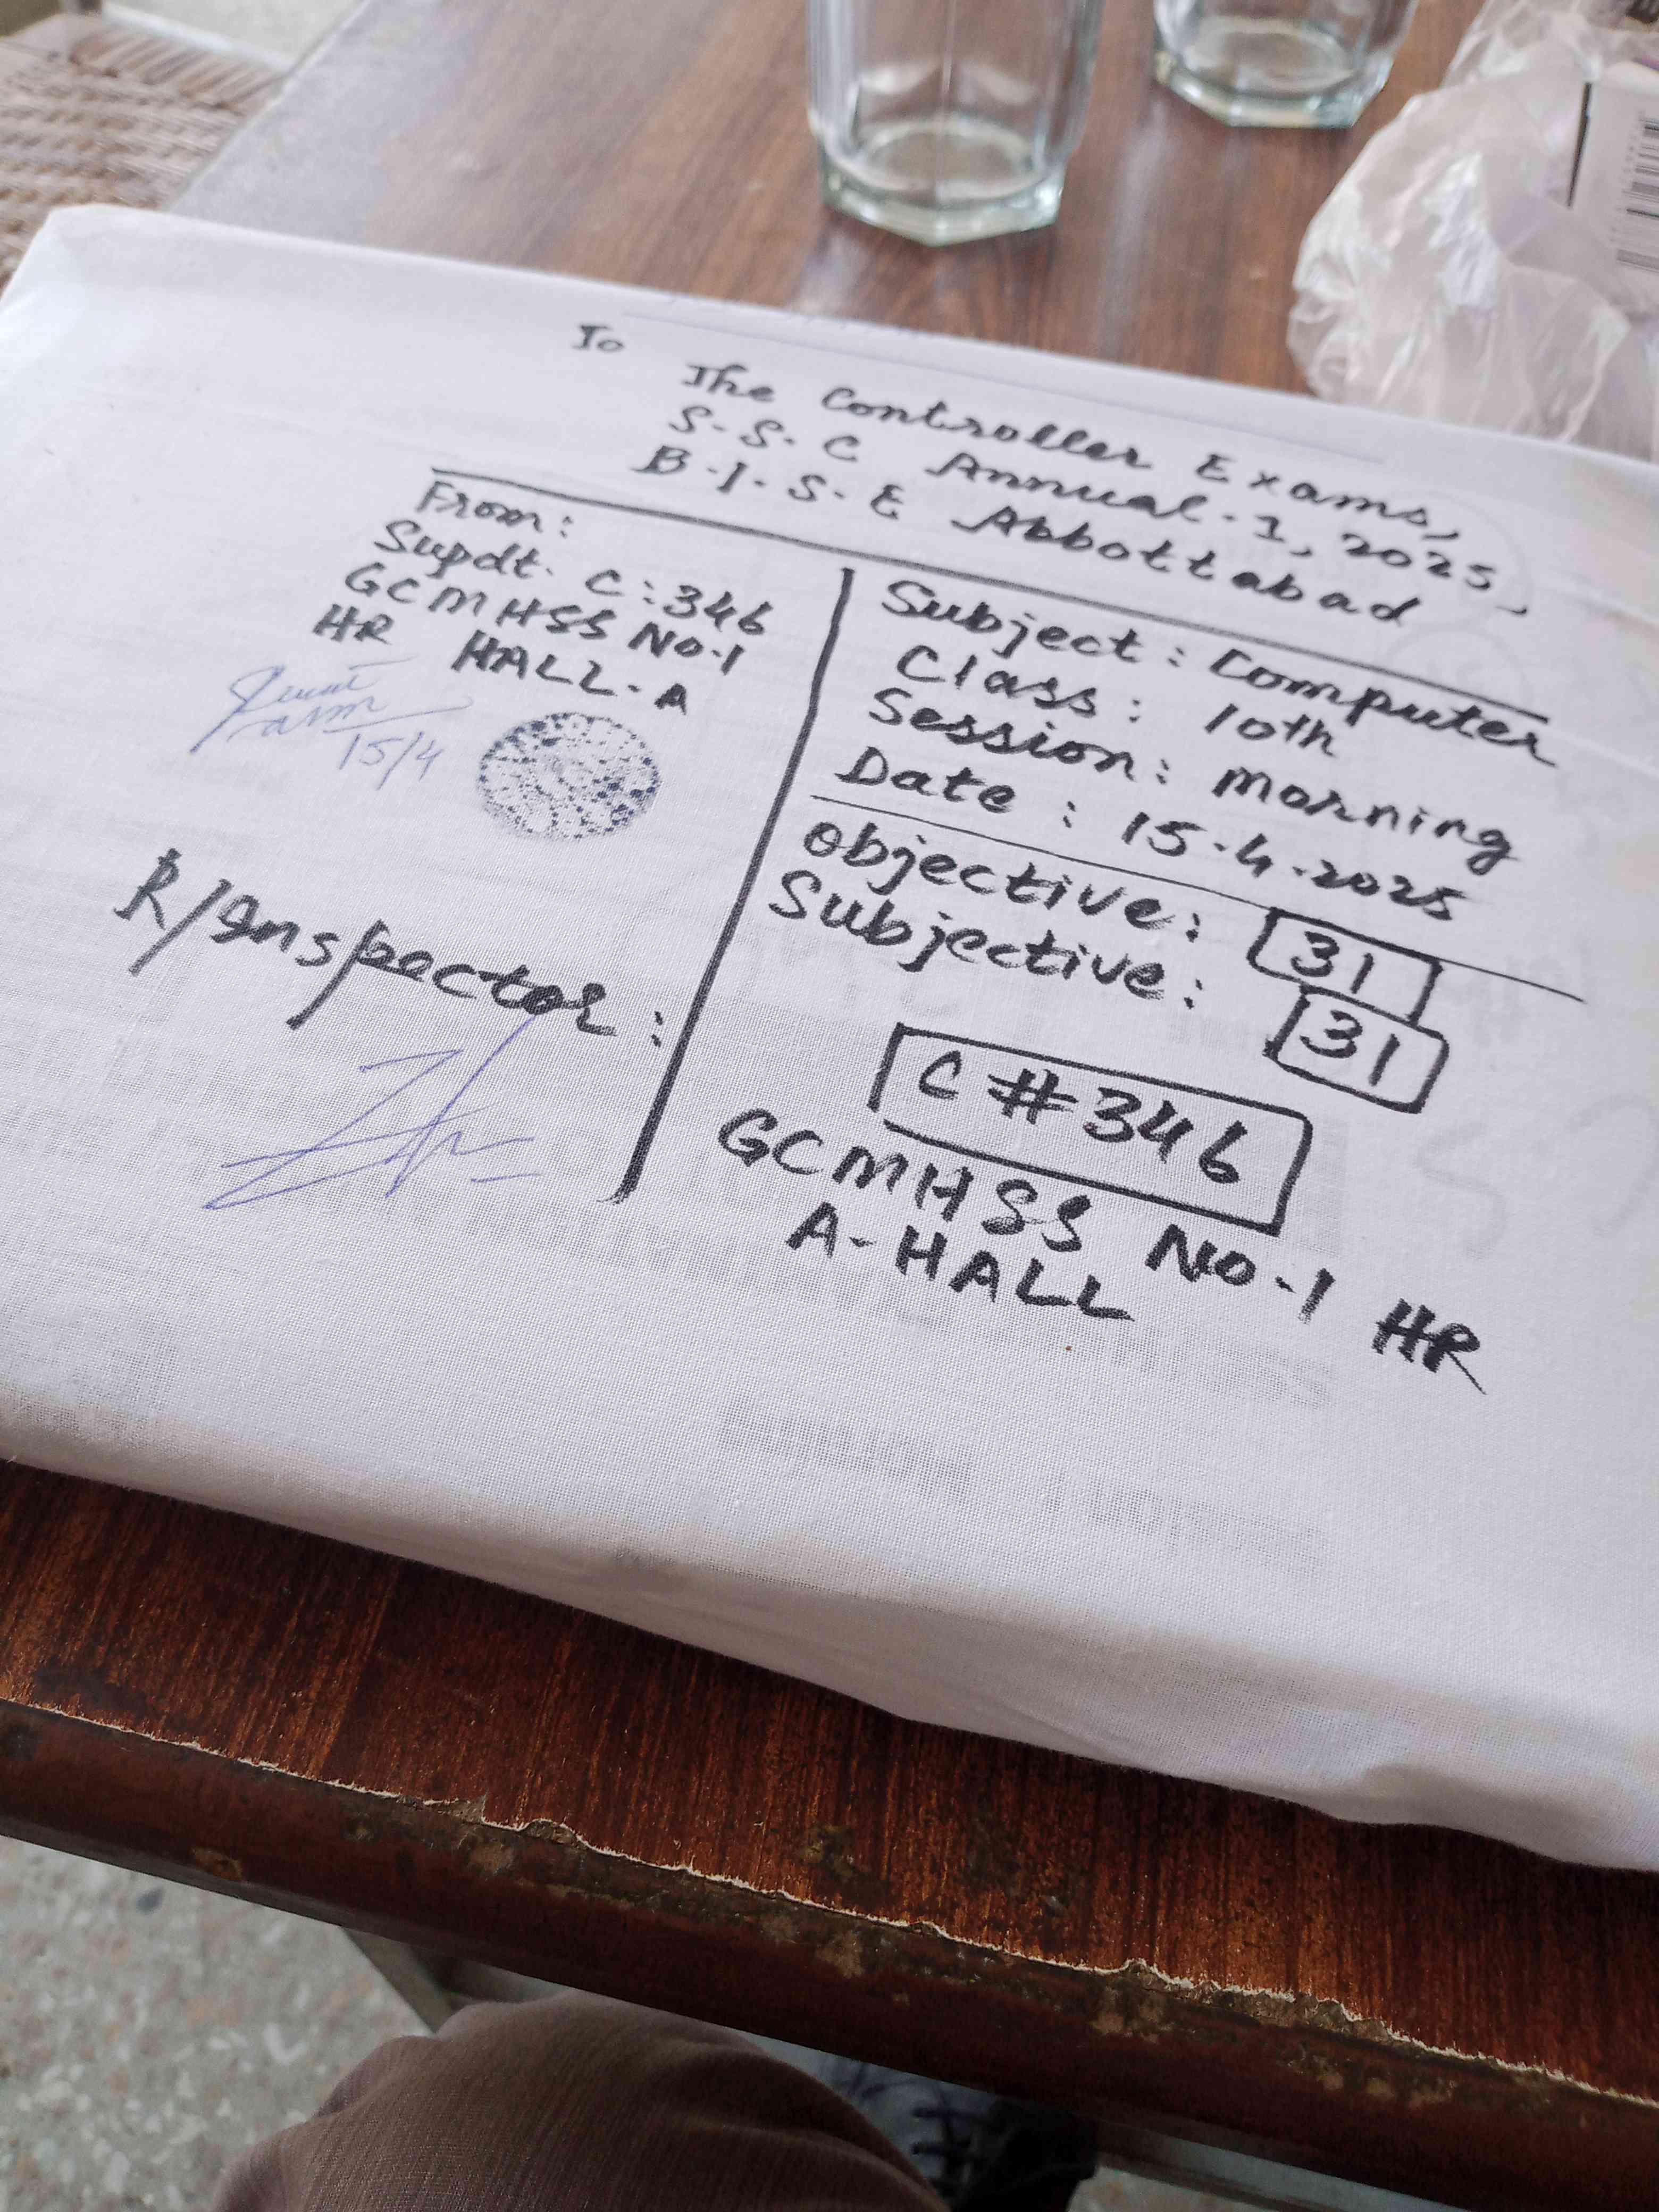 To
The Controller Exams,
S.S.C Annual-1, 2025,
B.I.S.E Abbottabad
From:
Supdt. C:346
GCMHSS No.1
HR HALL-A
15/4
R/Inspector:
Subject: Computer
Class: 10th
Session: Morning
Date: 15.4.2025
Objective: 31
Subjective: 31
C # 346
GCMHSS No-1 HR
A-HALL